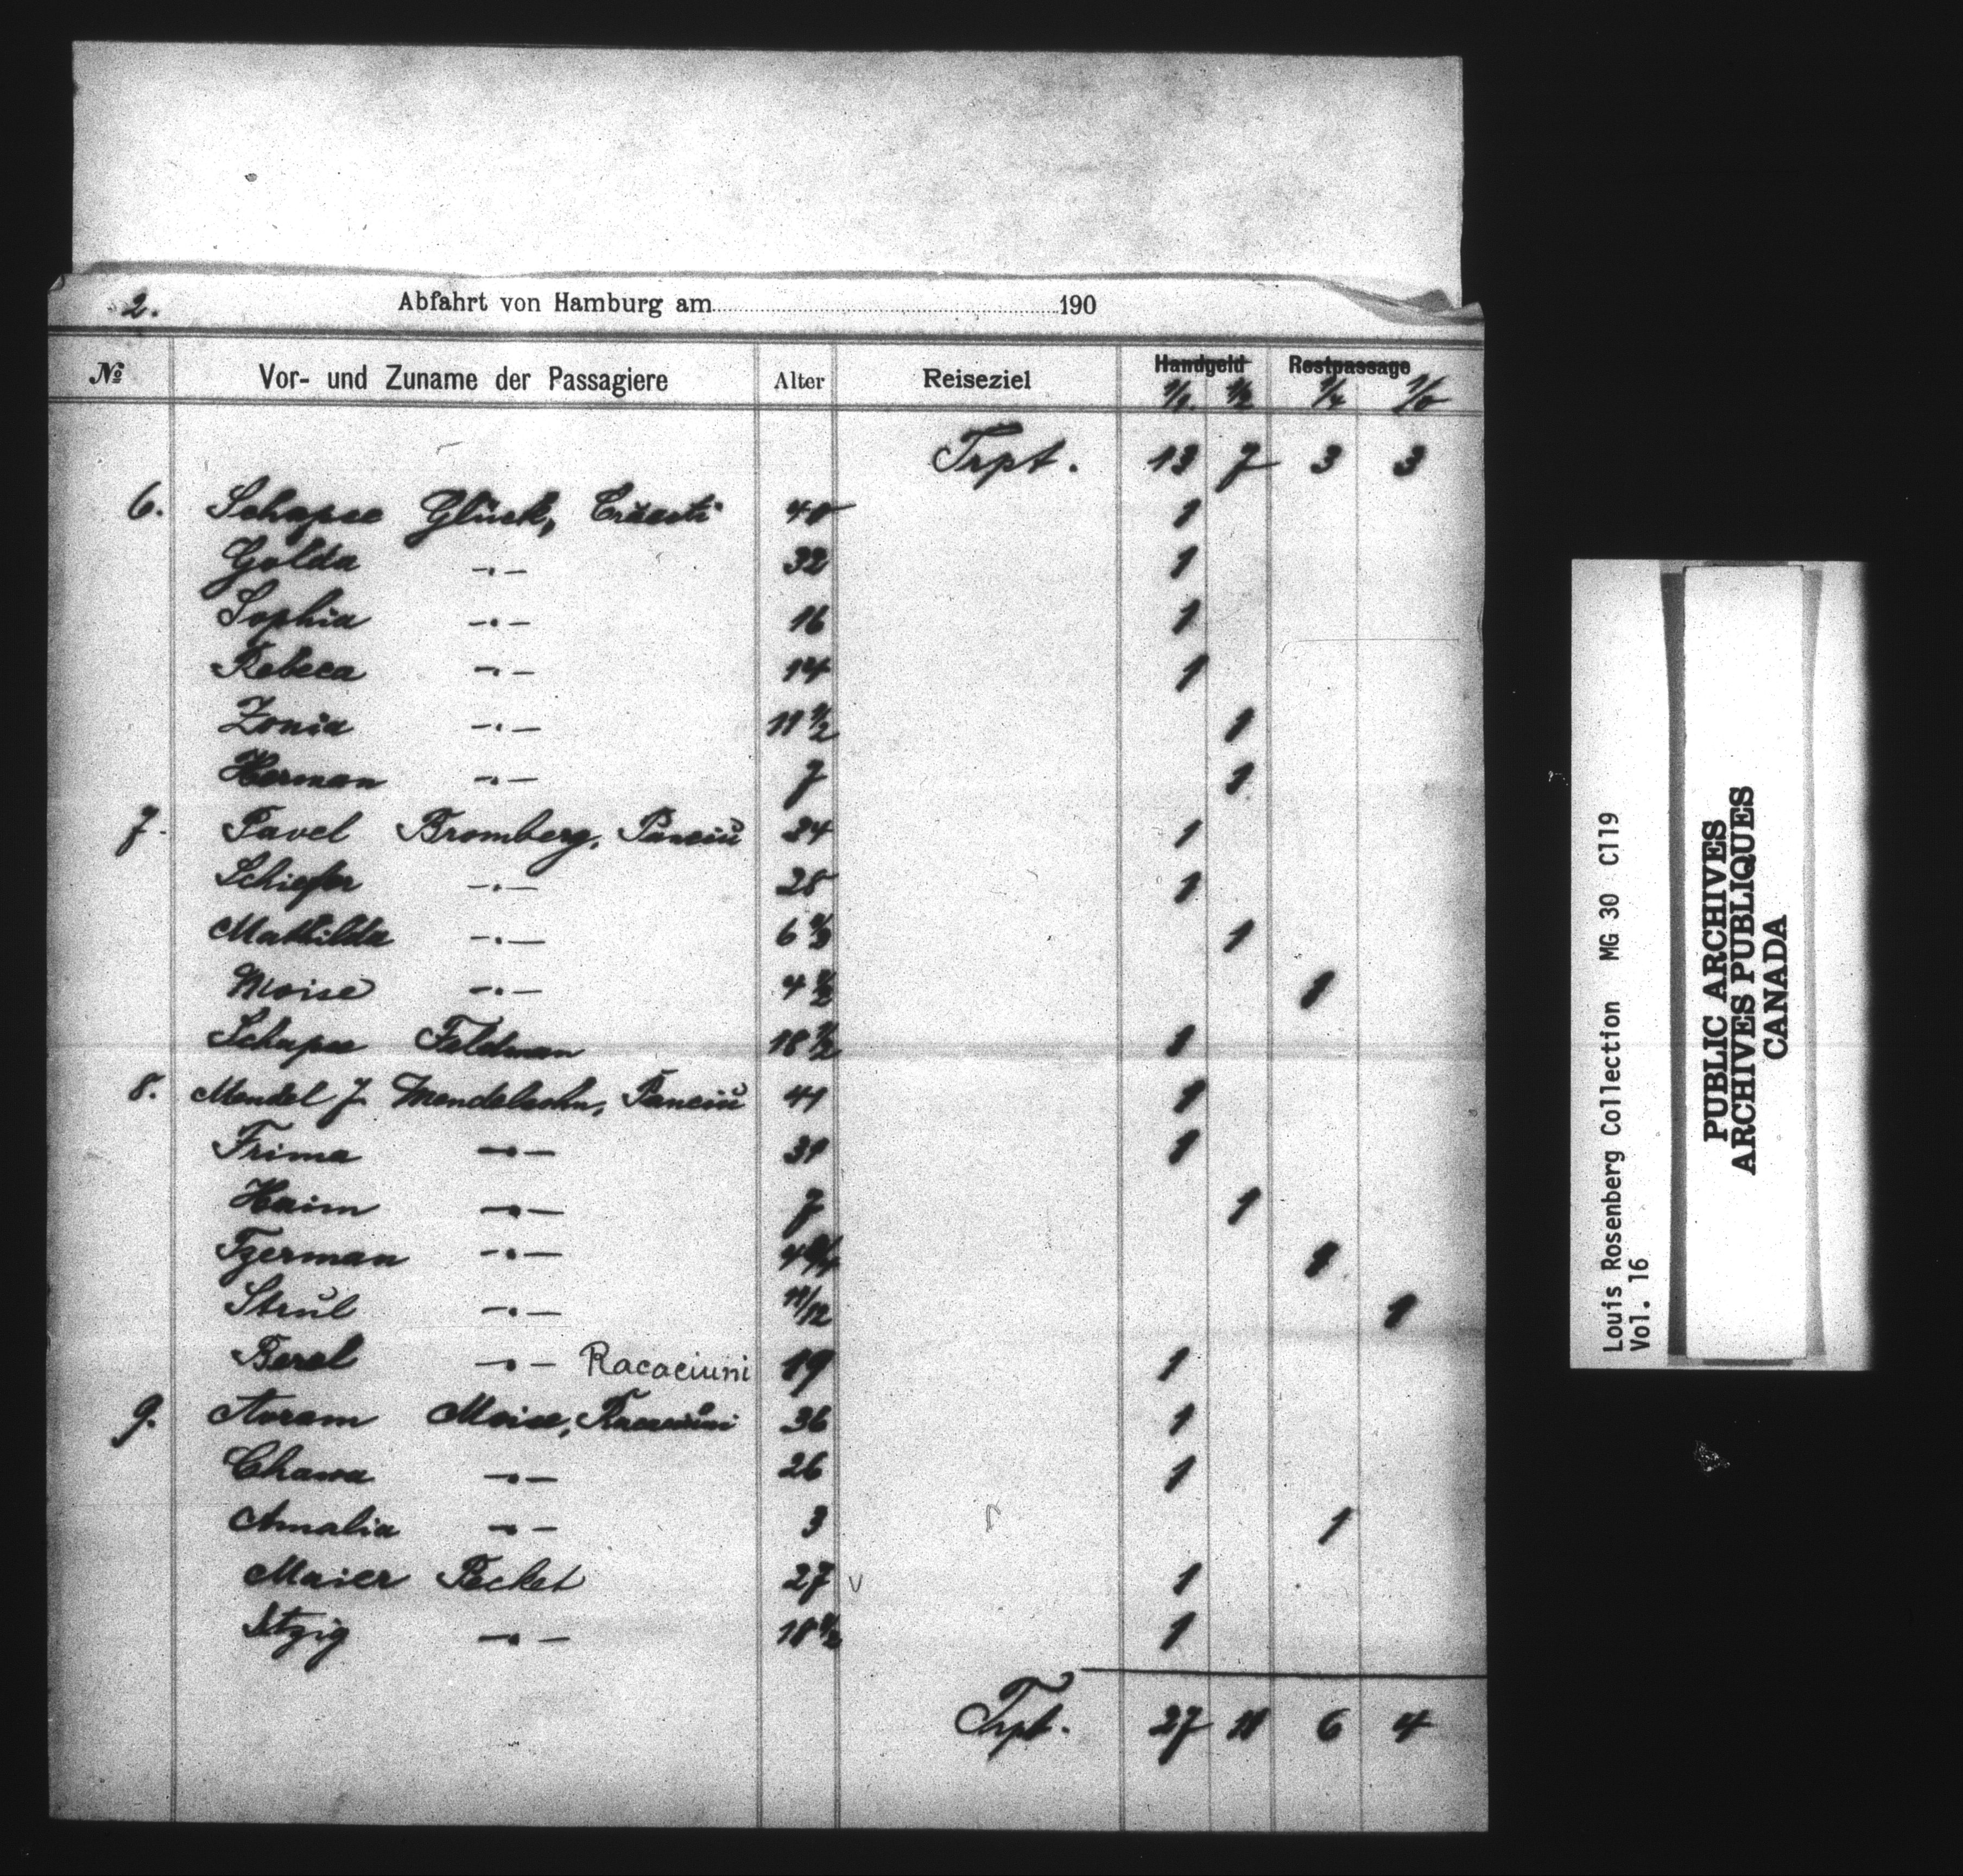 2. Abfahrt von Hamburg am 190
№ Vor- und Zuname der Passagiere Alter Reiseziel Handgeld Restpassage
1/1. 1/2 1/4 1/0
Trpt. 13 7 3 3
6. Schapse Glück, 40 1
Golda -.- 32 1
Sophia -.- 16 1
Rebeca -.- 14 1
Zonia -.- 11 1/2 1
Herman -.- 7 1
7. Pavel Bromberg, Panciŭ 34 1
-.- 28 1
Mathilda -.- 6 1/2 1
Moise -.- 4 1/2 1
Schapse Feldman 18 1/2 1
8. Mendel J Mendelsohn, Panciŭ 41 1
Frima -.- 31 1
Haim -.- 7 1
Tzerman -.- 1
Strul -.- 11/12 1
Berel -.- Racaciuni 19 1
9. Avram Moise, Racaciŭni 36 1
Chawa -.- 26 1
Amalia -.- 3 1
Maier Pecket 27 v 1
Itzig -.- 18 1/2 1
Trpt. 27 11 6 4
Louis Rosenberg Collection MG 30 C119
Vol. 16
PUBLIC ARCHIVES
ARCHIVES PUBLIQUES
CANADA